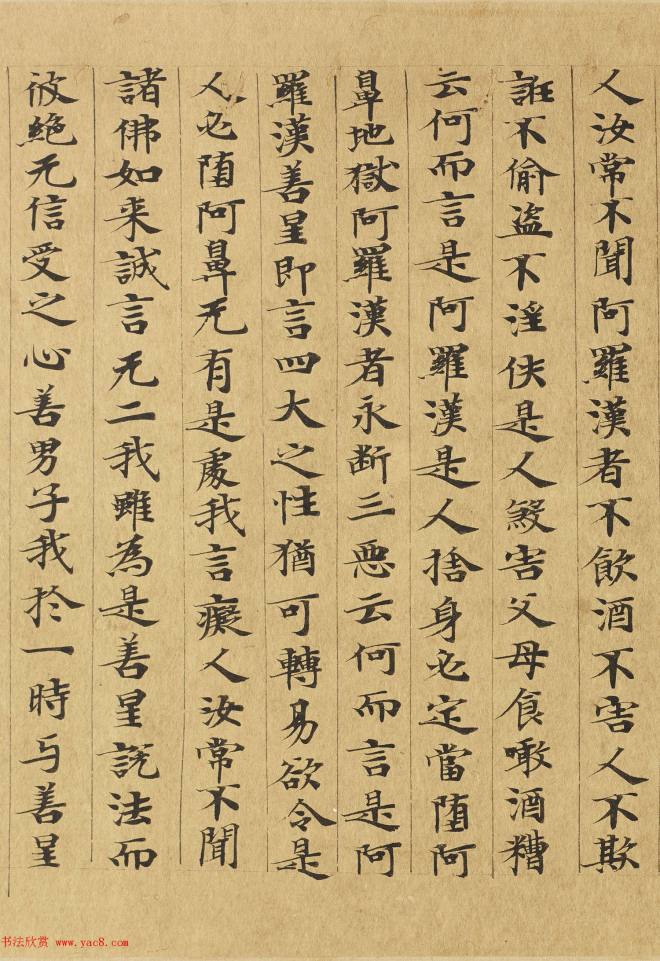 人汝常不聞阿羅漢者不飲酒不害人不欺
誑不偷盗不淫佚是人煞害父母食噉酒糟
云何而言是阿羅漢是人捨身必定當堕阿
鼻地獄阿羅漢者永断三惡云何而言是阿
羅漢善星即言四大之性猶可轉易欲令是
人必堕阿鼻无有是處我言癡人汝常不聞
諸佛如来誠言无二我雖為是善星說法而
彼絶无信受之心善男子我扵一時与善星
书法欣赏 www.yac8.com